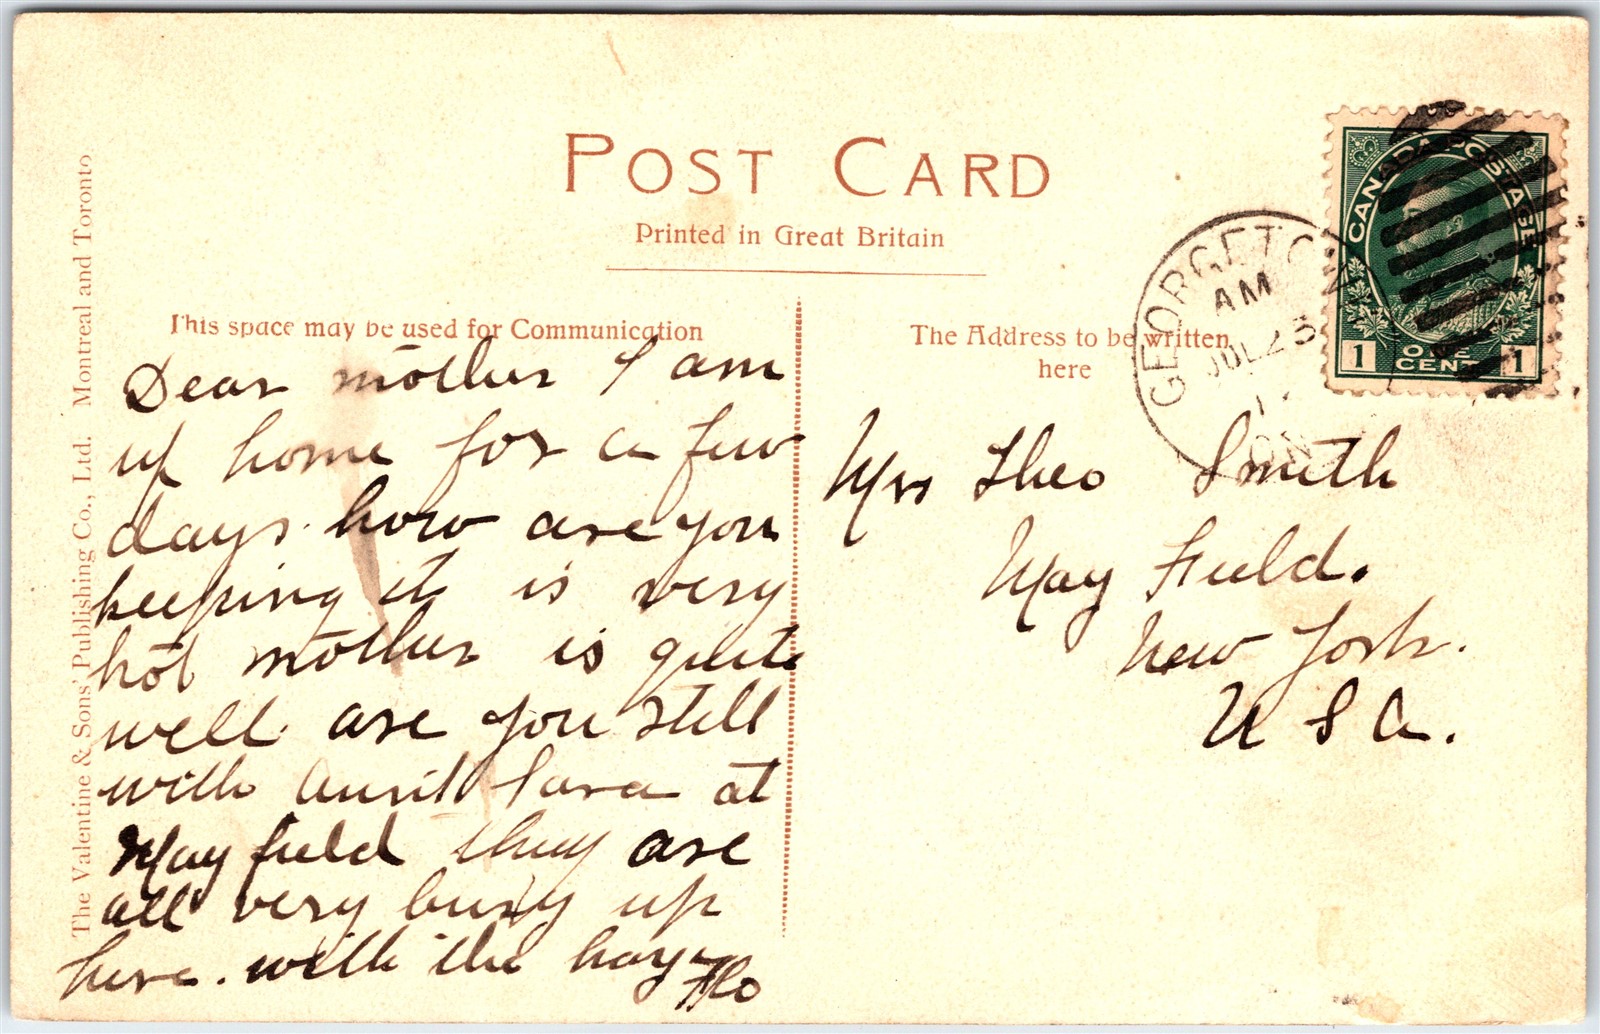 POST CARD
Printed in Great Britain
This space may be used for Communication
The Address to be written
here
The Valentine & Sons' Publishing Co., Ltd. Montreal and Toronto
CANADA POSTAGE
1 ONE CENT 1
GEORGETOWN
AM
JUL 23
ONT
Dear mother I am
up home for a few
days. how are you
keeping it is very
hot mother is quite
well. are you still
with aunt Sara at
May field they are
all very busy up
here. with the hay
Flo
Mrs Theo Smith
May Field.
New York.
U S A.